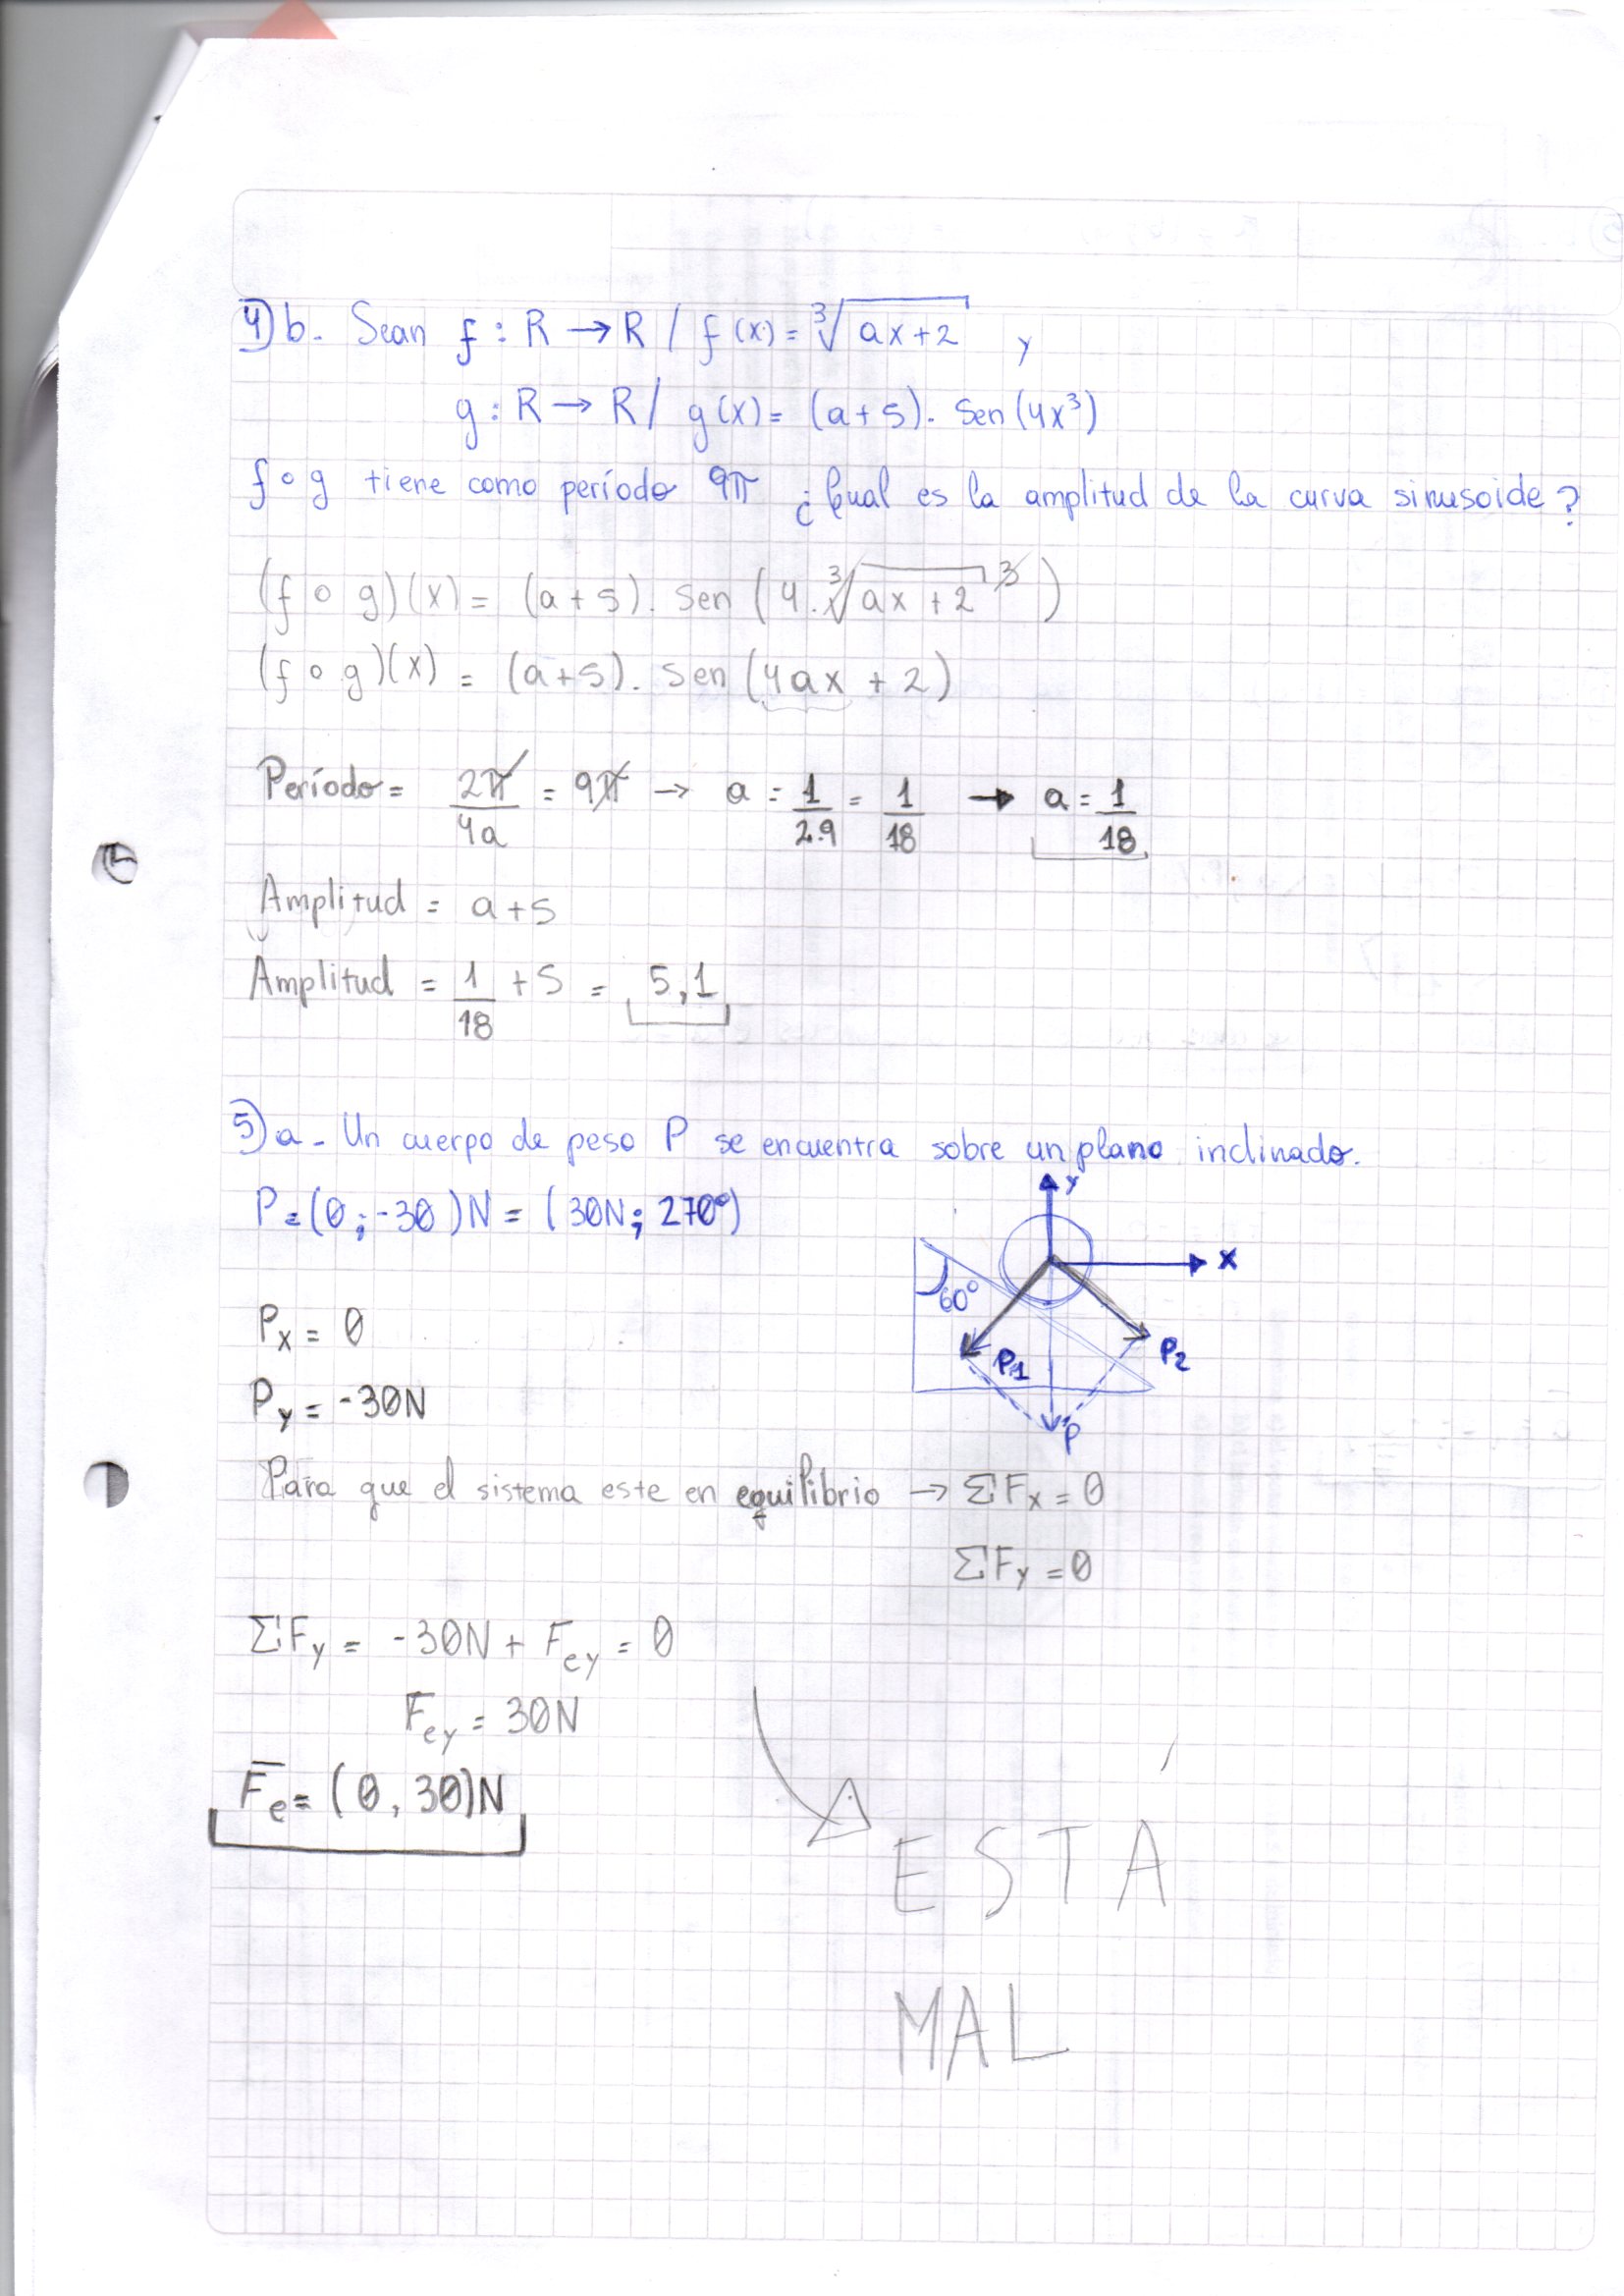 4) b. Sean f : R → R / f(x) = ∛(ax+2) y
g : R → R / g(x) = (a+5). Sen (4x³)
f o g tiene como período 9π ¿Cual es la amplitud de la curva sinusoide?
(f o g)(x) = (a+5). Sen (4.∛(ax+2)³)
(f o g)(x) = (a+5). Sen (4ax + 2)
Período = 2π/4a = 9π → a = 1/2.9 = 1/18 → a = 1/18
Amplitud = a+5
Amplitud = 1/18 + 5 = 5,1
5) a - Un cuerpo de peso P se encuentra sobre un plano inclinado.
P = (0 ; -30) N = (30N ; 270°)
y
x
60°
P1
P2
P
Px = 0
Py = -30N
Para que el sistema este en equilibrio → ΣFx = 0
ΣFy = 0
ΣFy = -30N + Fey = 0
Fey = 30N
F̅e = (0, 30)N
ESTÁ
MAL